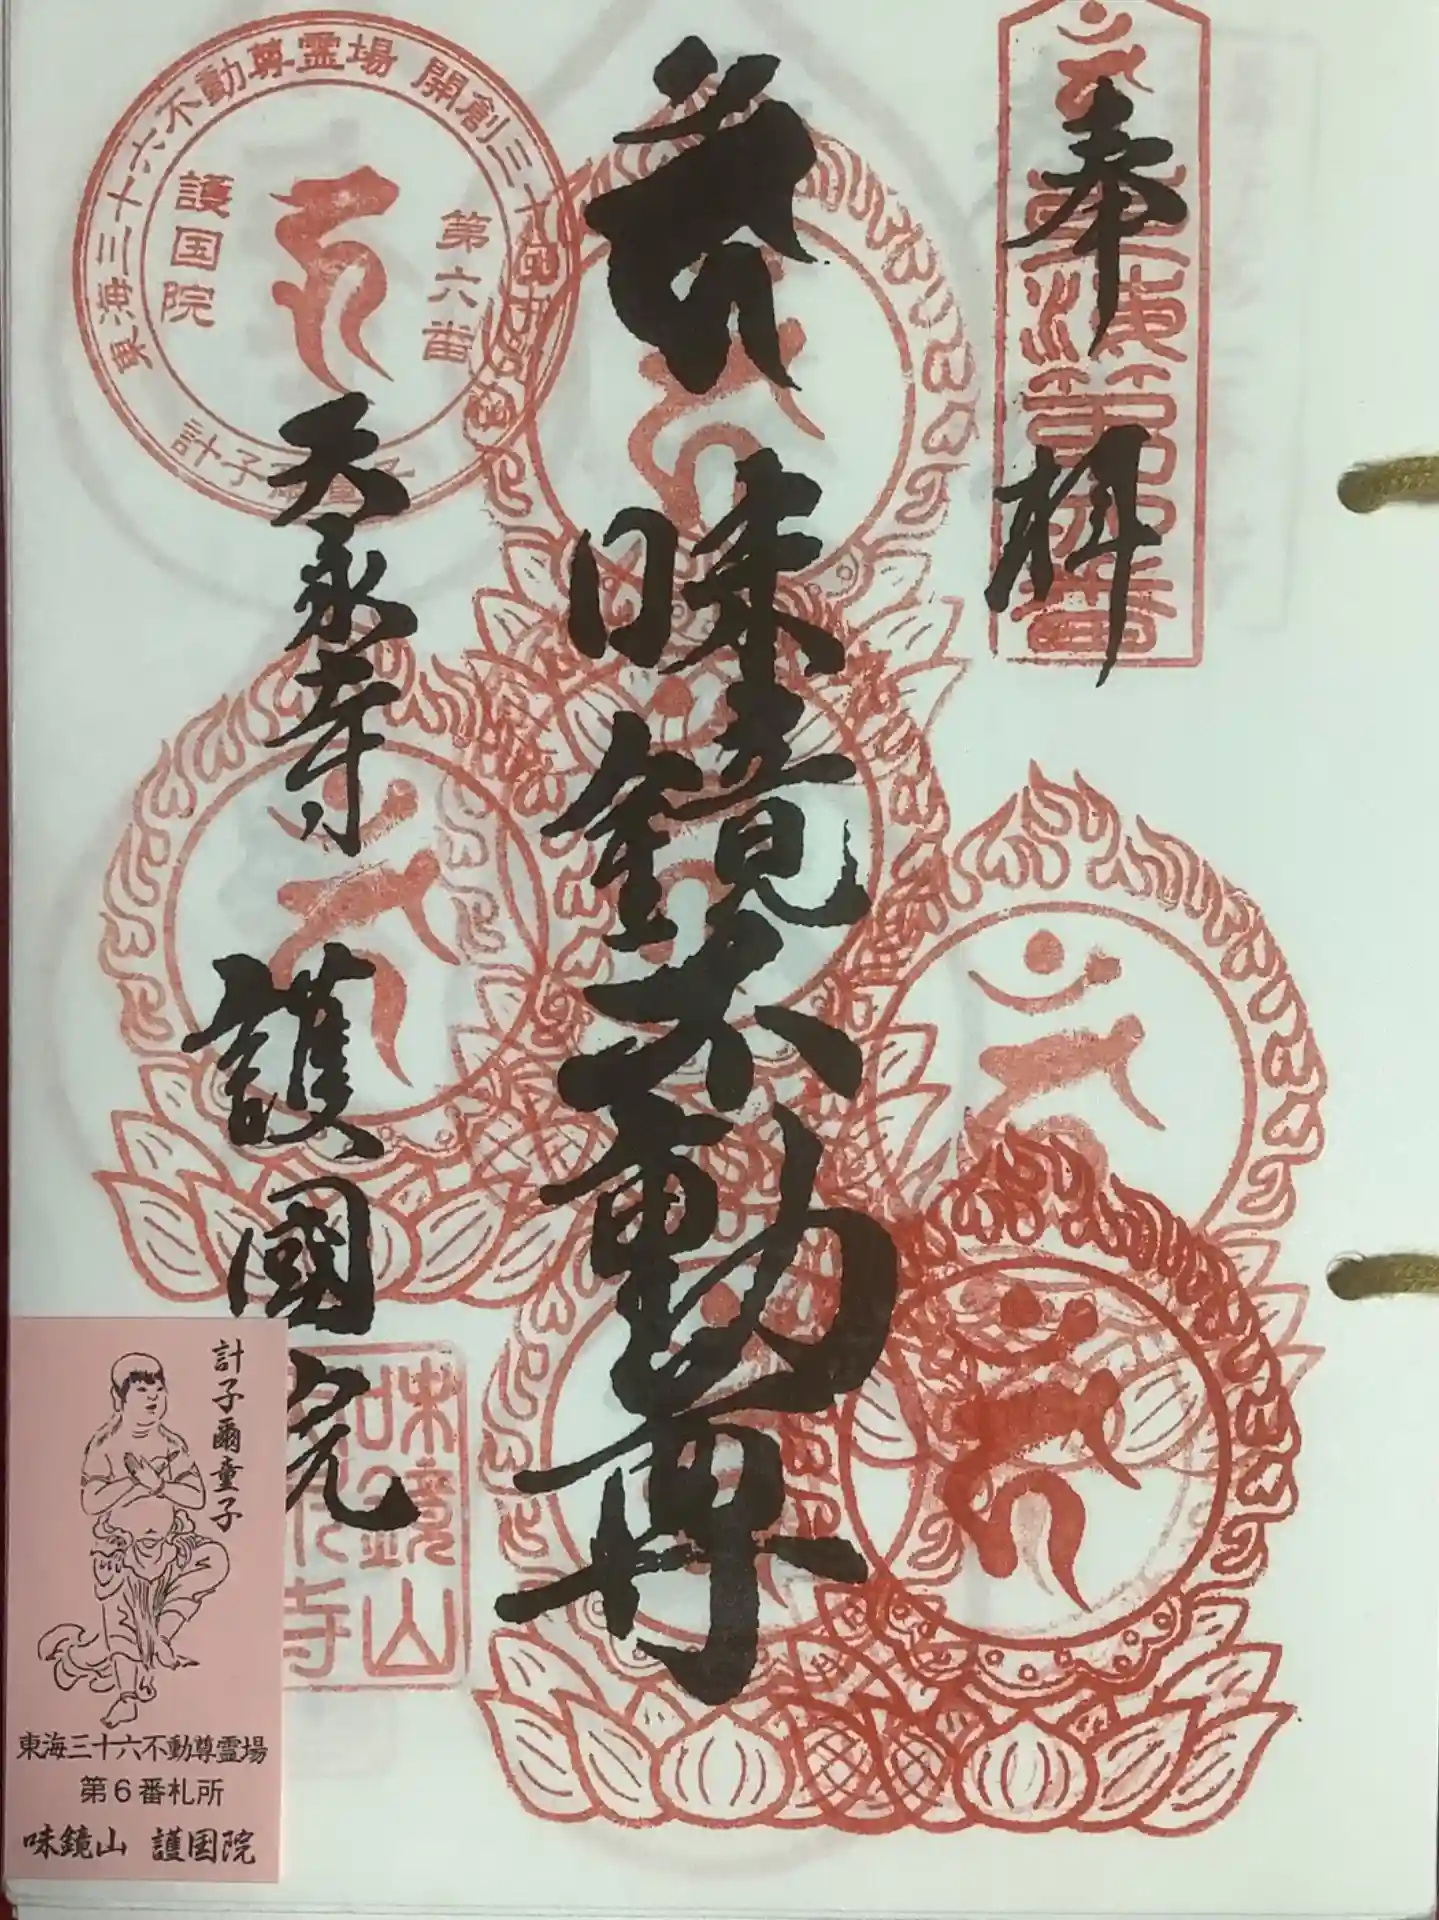 奉拝
東海第六番
味鏡不動尊
天永寺
護國院
東海三十六不動尊霊場 開創三十周年
第六番
護国院
計子爾童子
味鏡山
計子爾童子
東海三十六不動尊霊場
第6番札所
味鏡山 護国院